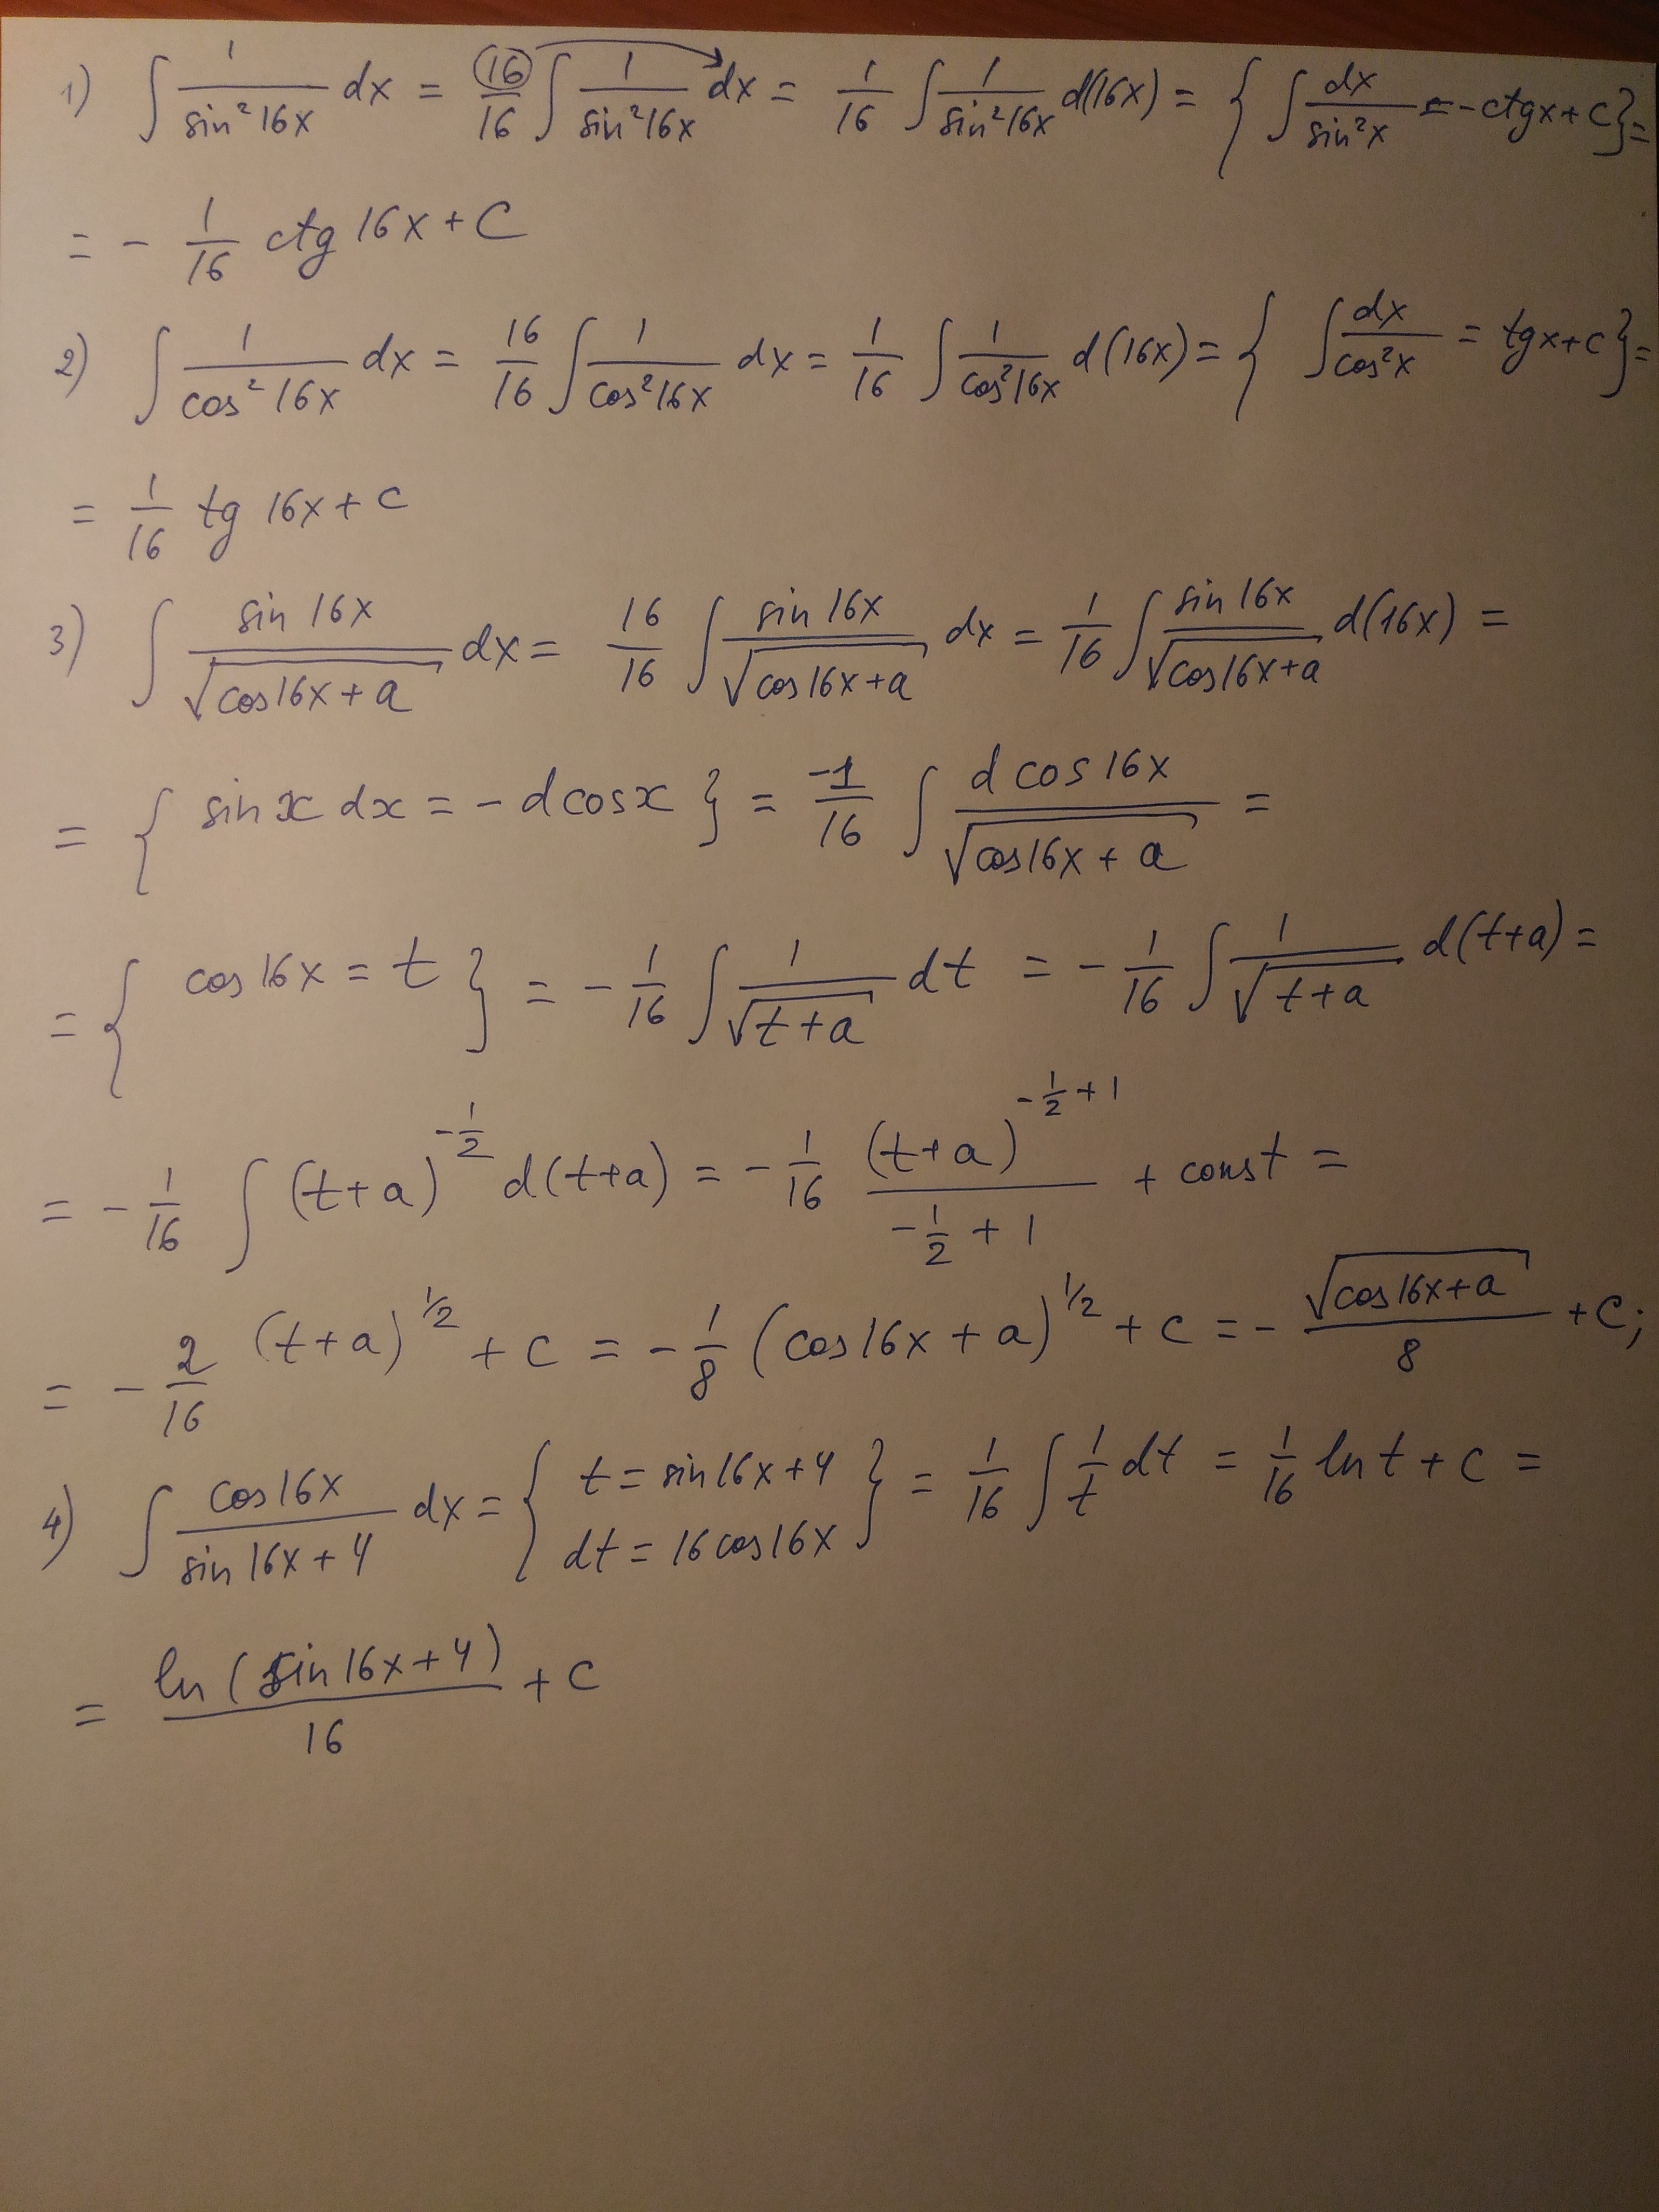 1) ∫ 1/(sin² 16x) dx = (16)/16 ∫ 1/(sin² 16x) dx = 1/16 ∫ 1/(sin² 16x) d(16x) = { ∫ dx/(sin² x) = -ctg x + C } =
= - 1/16 ctg 16x + C
2) ∫ 1/(cos² 16x) dx = 16/16 ∫ 1/(cos² 16x) dx = 1/16 ∫ 1/(cos² 16x) d(16x) = { ∫ dx/(cos² x) = tg x + c } =
= 1/16 tg 16x + c
3) ∫ sin 16x/√(cos 16x + a) dx = 16/16 ∫ sin 16x/√(cos 16x + a) dx = 1/16 ∫ sin 16x/√(cos 16x + a) d(16x) =
= { sin x dx = - d cos x } = -1/16 ∫ d cos 16x/√(cos 16x + a) =
= { cos 16x = t } = - 1/16 ∫ 1/√(t + a) dt = - 1/16 ∫ 1/√(t + a) d(t + a) =
= - 1/16 ∫ (t + a)^(-1/2) d(t + a) = - 1/16 (t + a)^(-1/2 + 1)/(-1/2 + 1) + const =
= - 2/16 (t + a)^(1/2) + c = - 1/8 (cos 16x + a)^(1/2) + c = - √(cos 16x + a)/8 + C;
4) ∫ cos 16x/(sin 16x + 4) dx = { t = sin 16x + 4 dt = 16 cos 16x } = 1/16 ∫ 1/t dt = 1/16 ln t + c =
= ln (sin 16x + 4)/16 + c